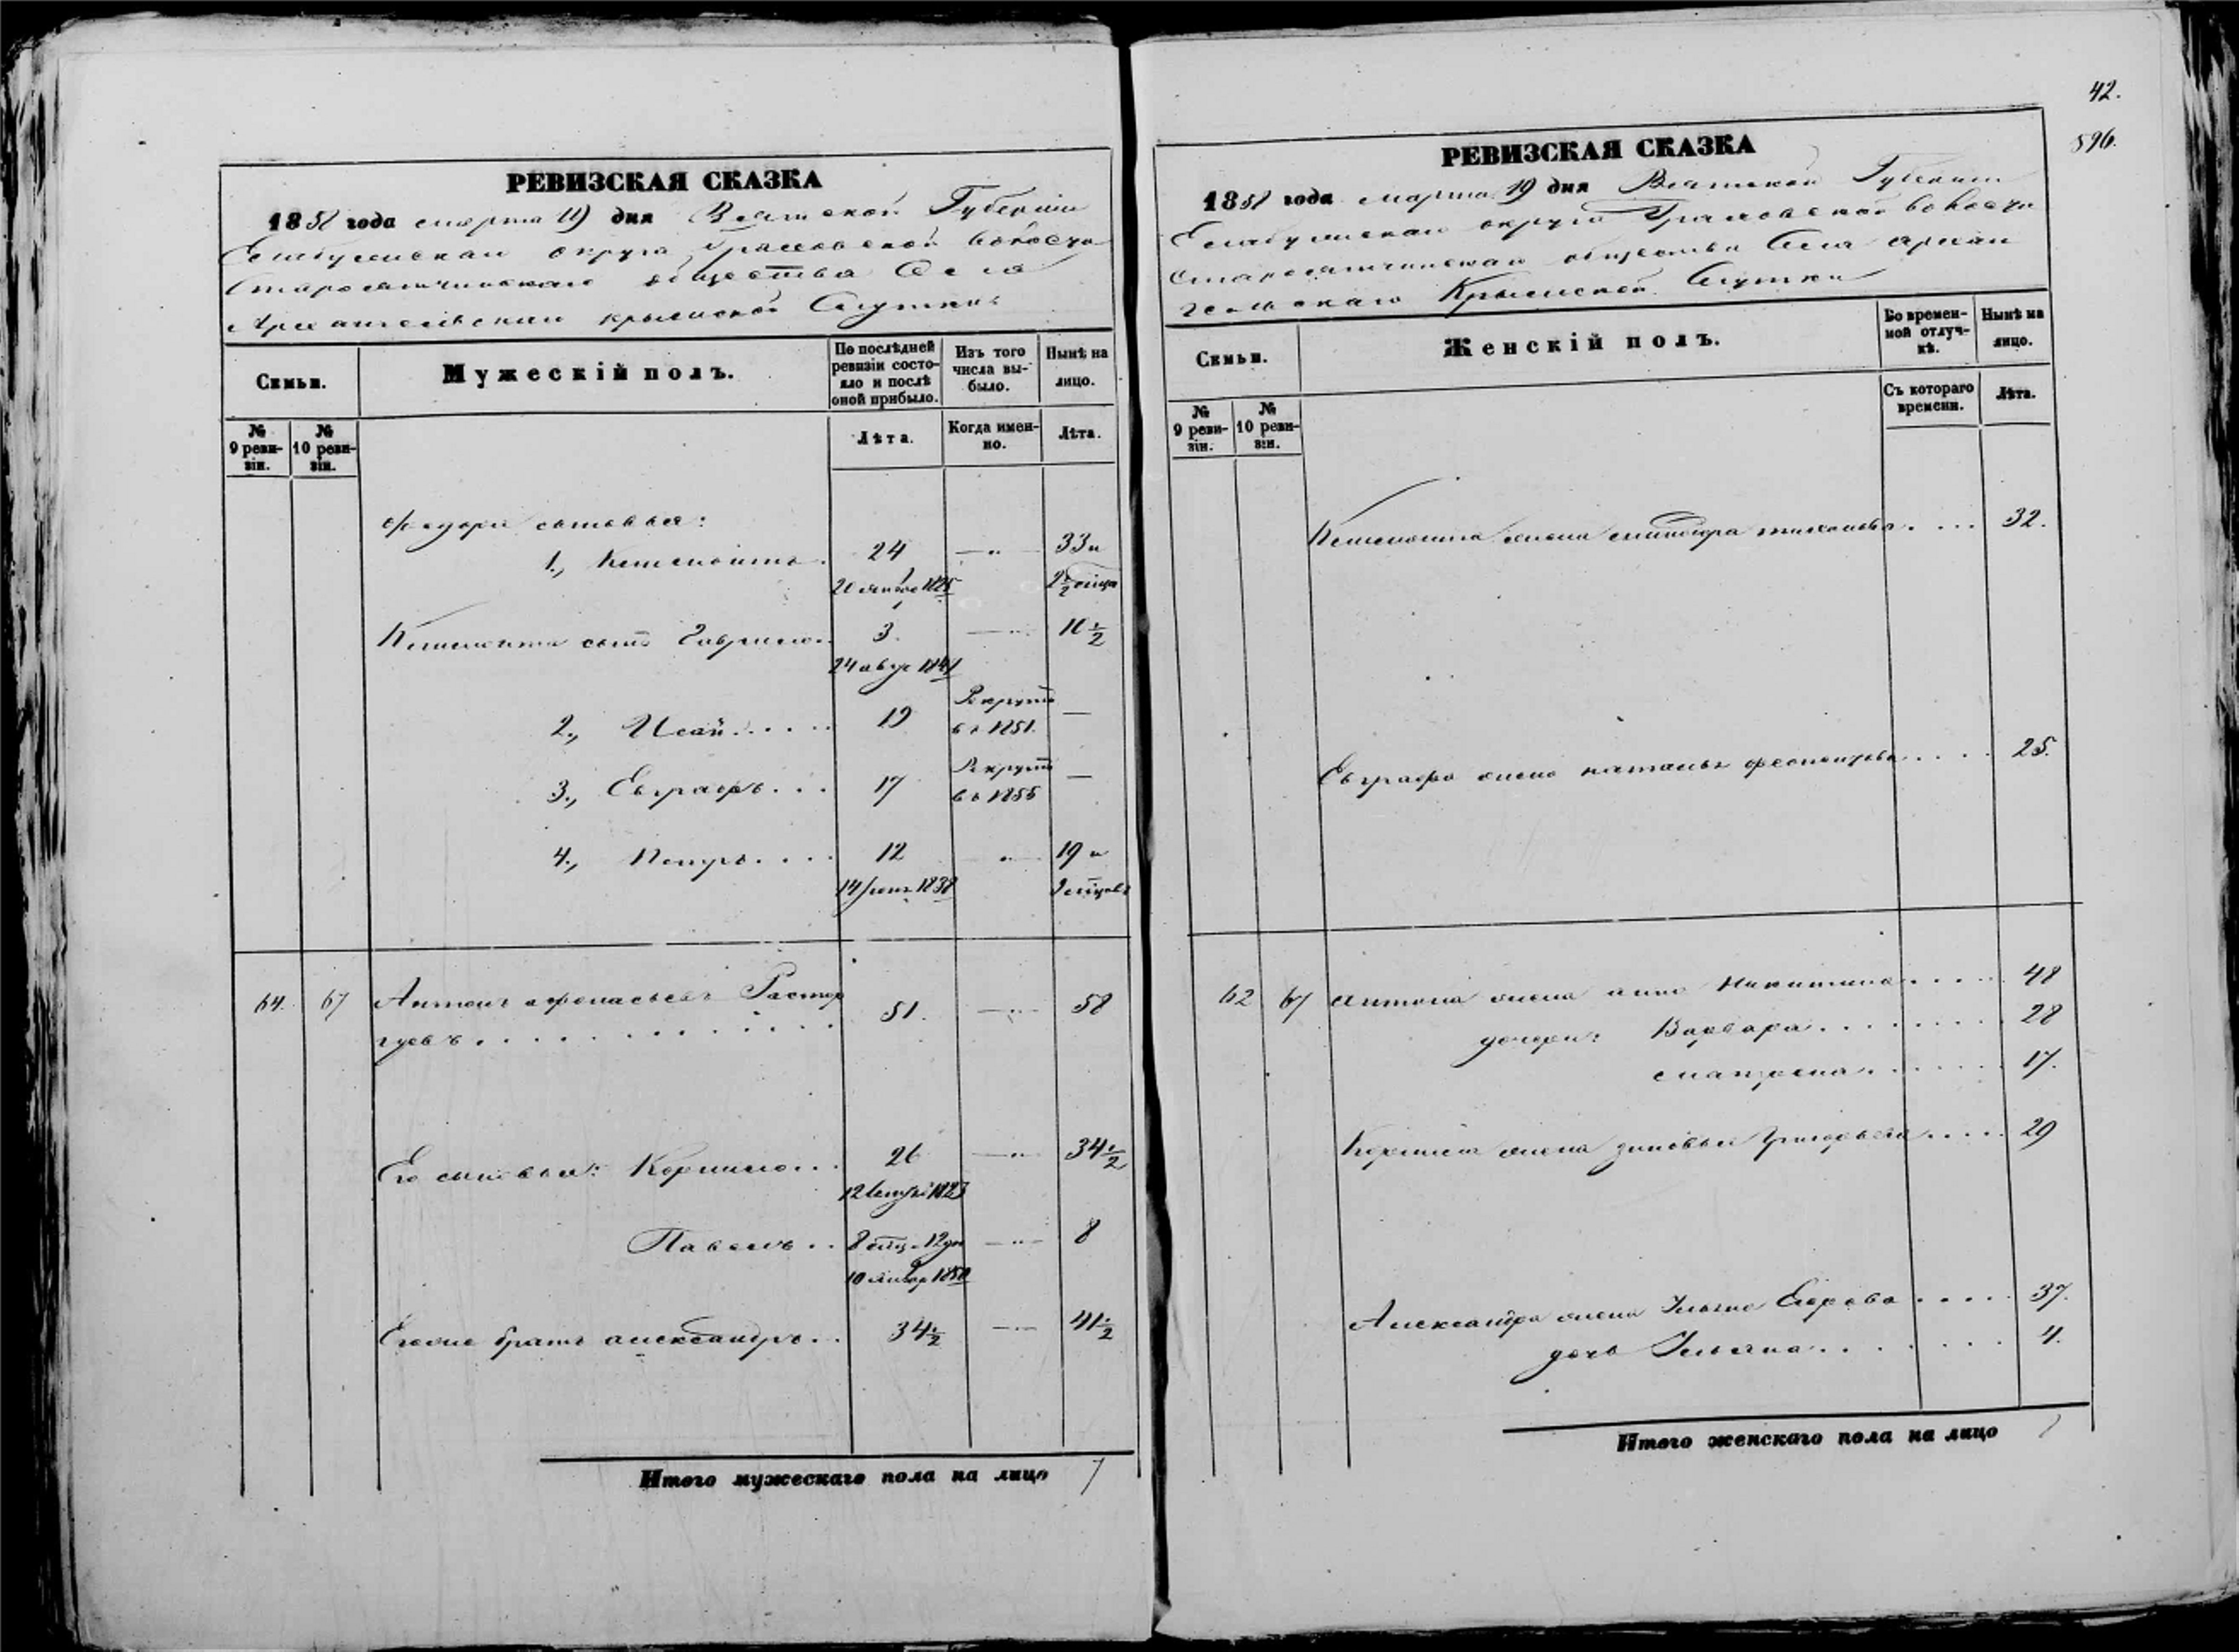 РЕВИЗСКАЯ СКАЗКА
1858 года марта 19 дня Вятской Губернiи
Елабужскаго округа Граховской волости
общества Села
Архангельскаго Крымской Слутки
Семьи.
Мужескiй полъ.
По послѣдней ревизiи состояло и послѣ оной прибыло.
Изъ того числа выбыло.
Нынѣ на лицо.
№ 9 ревизiи.
№ 10 ревизiи.
Лѣта.
Когда именно.
Лѣта.
Федора сыновья:
1., Климонтъ. 24 — " — 33 и
Климонта сынъ Гаврило. 3. — " — 10 1/2
24 авгус 1847
2., Исай..... 19 Рекрутъ —
въ 1851.
3., Евграфъ... 17 Рекрутъ —
въ 1855
4., Петръ.... 12 " — 19 и
14 1838
64. 67 Антонъ Афонасьевъ Растор 51. — " — 58
гуевъ.............
Его сыновья: Корнило... 26 — " — 34 1/2
Павелъ.. 8 мѣц. 12 дн — " — 8
10 январ 1850
Егоже братъ александръ.. 34 1/2 — " — 41 1/2
Итого мужескаго пола на лицо 7
42.
596.
РЕВИЗСКАЯ СКАЗКА
1858 года марта 19 дня Вятской Губернiи
Елабужскаго округа Граховской волости
общества Села Архан
гельскаго Крымской Слутки
Семьи.
Женскiй полъ.
Во временной отлучкѣ.
Нынѣ на лицо.
№ 9 ревизiи.
№ 10 ревизiи.
Съ котораго времени.
Лѣта.
Климонта жена .... 32.
Евграфа жена наталья .... 25.
62 67 Антона жена анна Никитина..... 48
дочери: Варвара........ 28
матрена....... 17.
Корнила жена зиновья Григорьева..... 29
Александра жена Егорова .... 37.
дочь Ульяна....... 4.
Итого женскаго пола на лицо 7